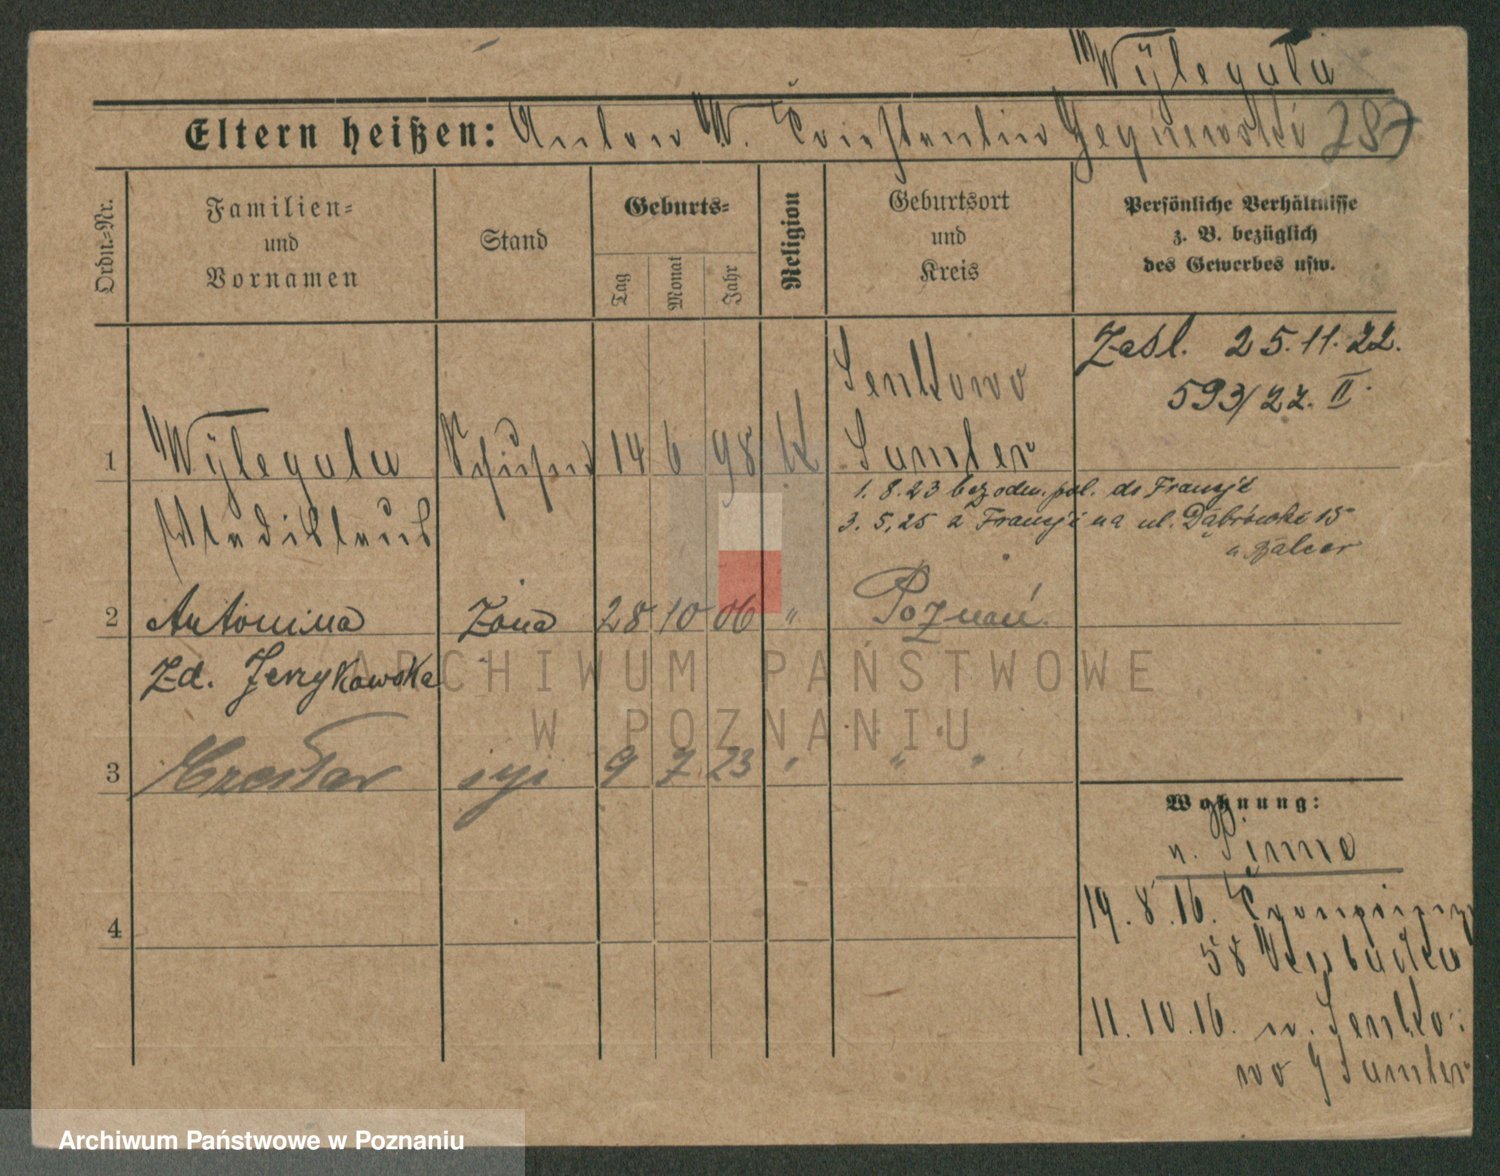 Wÿlegala
Eltern heißen: Anton W. Constantin 787
Ordn.=Nr.
Familien=
und
Vornamen
Stand
Geburts=
Tag
Monat
Jahr
Religion
Geburtsort
und
Kreis
Persönliche Verhältnisse
z. B. bezüglich
des Gewerbes usw.
Zasl. 25.11.22.
593/22. II.
Sentkowo
1 Wÿlegala 14 6 98 k Samter
Wladislaus
1.8.23 bez odm. pol. do Francji
3.5.25 z Francji na ul. Dąbrowski 15
2 Antonina Żona 28 10 06 " Poznań.
Zd. Jerzykowska
3 syn 9 7 23 " " "
4
Wohnung:
n. Pinne
19.8.16.
58
11.10.16. n. Sentko=
wo Samter
ARCHIWUM PAŃSTWOWE
W POZNANIU
Archiwum Państwowe w Poznaniu